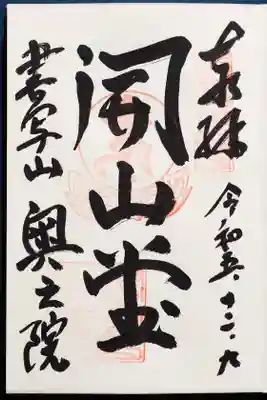 奉拝 令和五.十二.九
開山堂
書写山 奥之院